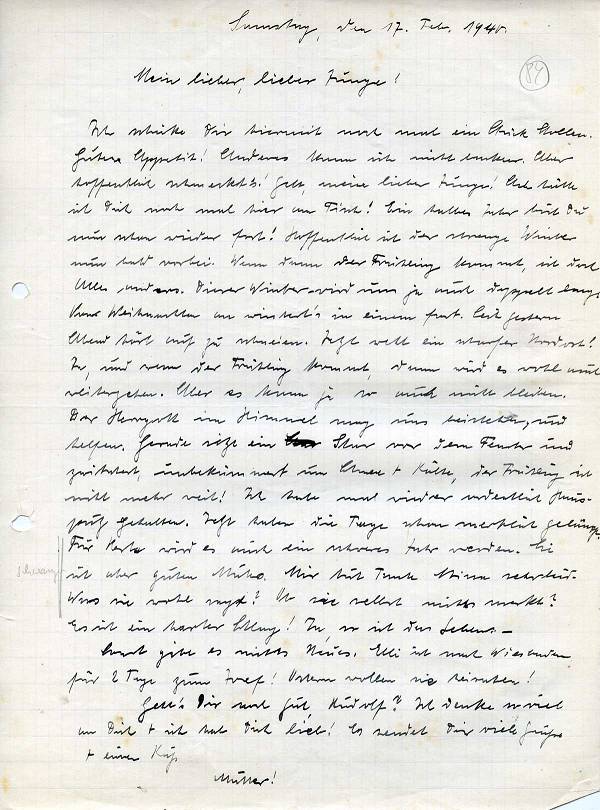 Samstag, den 17. Feb. 1940.
Mein lieber, lieber Junge!
84
Ich schicke Dir hiermit noch mal ein Stück Stollen.
Guten Appetit! Anderes kann ich nicht senden. Aber
hoffentlich schmeckt's! Gelt, mein lieber Junge! Ach hätte
ich Dich noch mal hier am Tisch! Ein halbes Jahr bist Du
nun schon wieder fort! Hoffentlich ist der strenge Winter
nun bald vorbei. Wenn dann der Frühling kommt, ist doch
Alles anders. Dieser Winter wird uns ja auch doppelt lang.
Vor Weihnachten an wintert's in einem fort. Seit gestern
Abend hört's auf zu schneien. Jetzt weht ein scharfer Nordost!
Ja, und wenn der Frühling kommt, dann wird es wohl auch
weitergehen. Aber es kann ja so auch nicht bleiben.
Der Herrgott im Himmel mag uns beistehen, und
helfen. Gerade sitzt ein Star vor dem Fenster und
zwitschert, unbekümmert um Schnee + Kälte, der Frühling ist
nicht mehr weit! Ich habe mal wieder ordentlich Haus-
putz gehalten. Jetzt haben die Tage schon merklich gelängt.
Für wird es auch ein schweres Jahr werden. Sie
schwanger
ist aber guten Mutes. Mir tut Tante Minna sehr leid.
Was sie wohl sagt? Ob sie selbst nichts merkt?
Es ist ein harter Schlag! Ja, so ist das Leben. –
Sonst gibt es nichts Neues. Elli ist nach Wiesbaden
für 2 Tage zum Josef! Ostern wollen sie heiraten!
Geht's Dir noch gut, Rudolf? Ich denke so viel
an Dich + ich hab Dich lieb! Es sendet Dir viele Grüße
+ einen Kuß
Mutter!